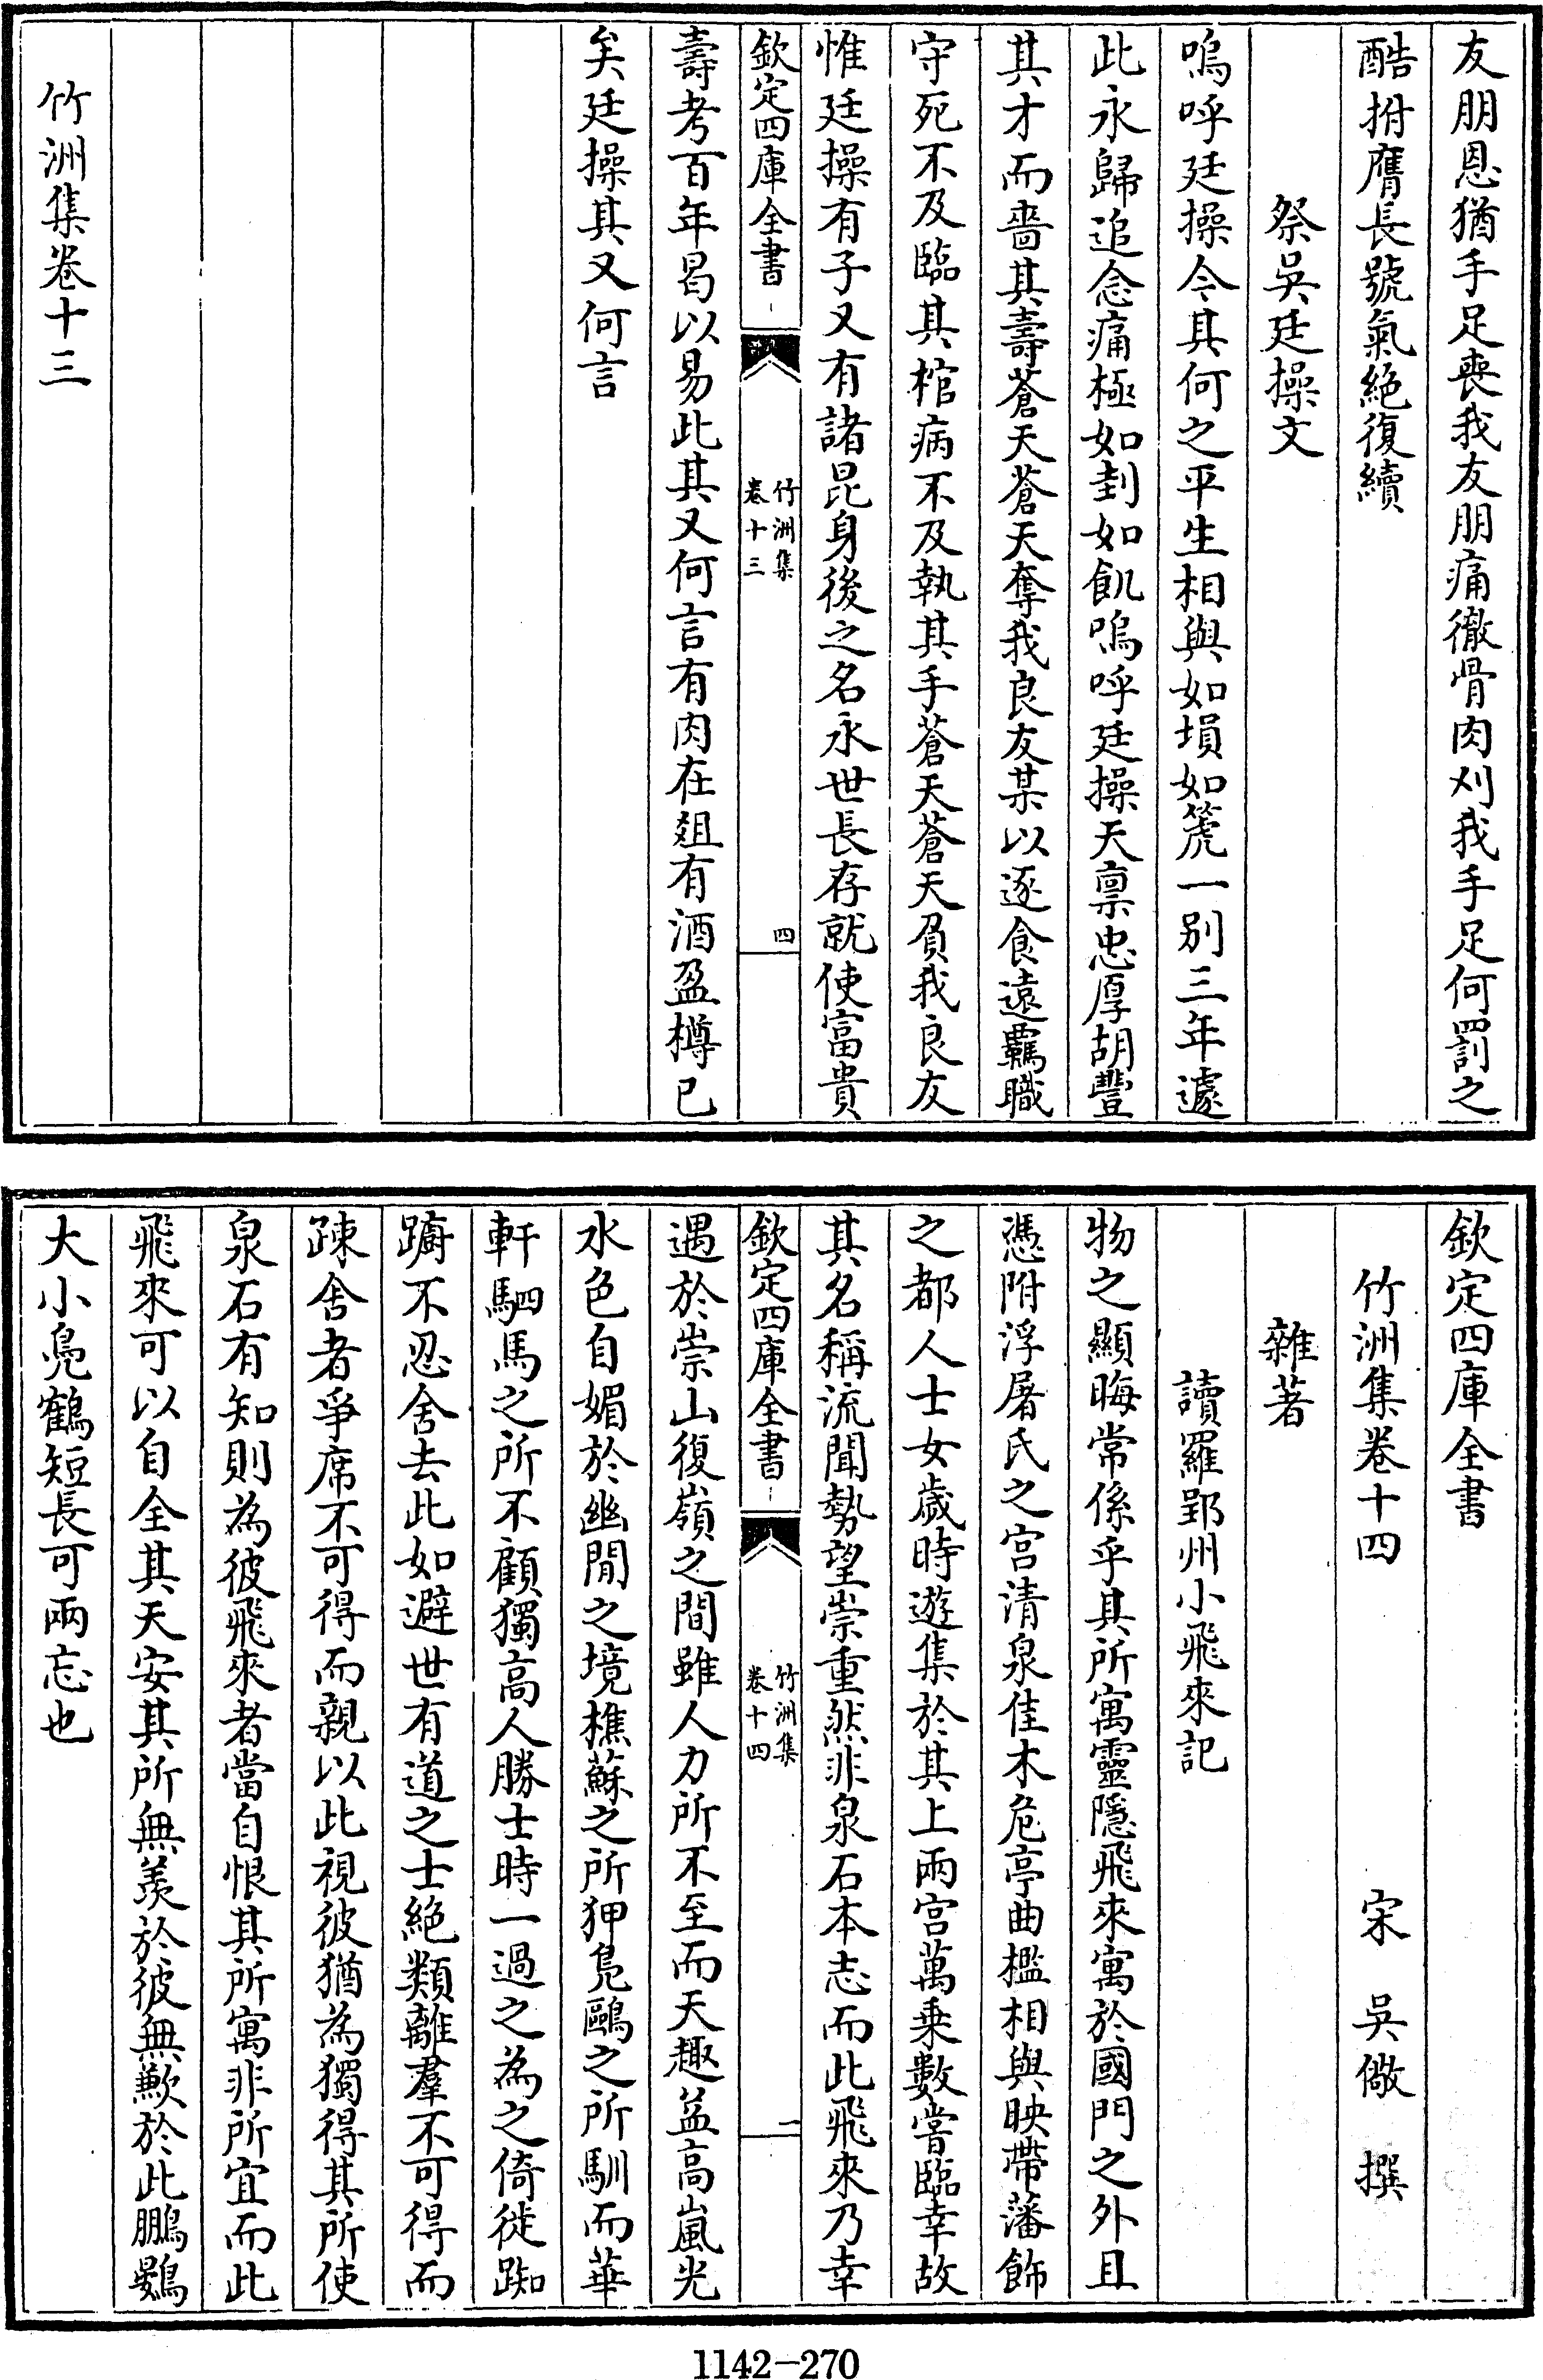 友朋恩猶手足喪我友朋痛徹骨肉刈我手足何罰之
酷拊膺長號氣絶復續
祭吳廷操文
嗚呼廷操今其何之平生相與如塤如篪一别三年遽
此永歸追念痛極如刲如飢嗚呼廷操天禀忠厚胡豐
其才而嗇其壽蒼天蒼天奪我良友某以逐食遠羈職
守死不及臨其棺病不及執其手蒼天蒼天負我良友
惟廷操有子又有諸昆身後之名永世長存就使富貴
欽定四庫全書
竹洲集
卷十三
四
壽考百年曷以易此其又何言有肉在爼有酒盈樽已
矣廷操其又何言
竹洲集卷十三
欽定四庫全書
竹洲集卷十四 宋 吳儆 撰
雜著
讀羅郢州小飛來記
物之顯晦常係乎其所寓靈隱飛來寓於國門之外且
憑附浮屠氏之宫清泉佳木危亭曲檻相與映帶藩飾
之都人士女歲時遊集於其上兩宫萬乗數嘗臨幸故
其名稱流聞勢望崇重然非泉石本志而此飛來乃幸
欽定四庫全書
竹洲集
卷十四
一
遇於崇山復嶺之間雖人力所不至而天趣益高嵐光
水色自媚於幽閒之境樵蘇之所狎鳬鷗之所馴而華
軒駟馬之所不顧獨高人勝士時一過之為之倚徙踟
躕不忍舍去此如避世有道之士絶類離羣不可得而
疎舍者爭席不可得而親以此視彼猶為獨得其所使
泉石有知則為彼飛來者當自恨其所寓非所宜而此
飛來可以自全其天安其所無羨於彼無歉於此鵬鷃
大小鳬鶴短長可兩忘也
1142-270